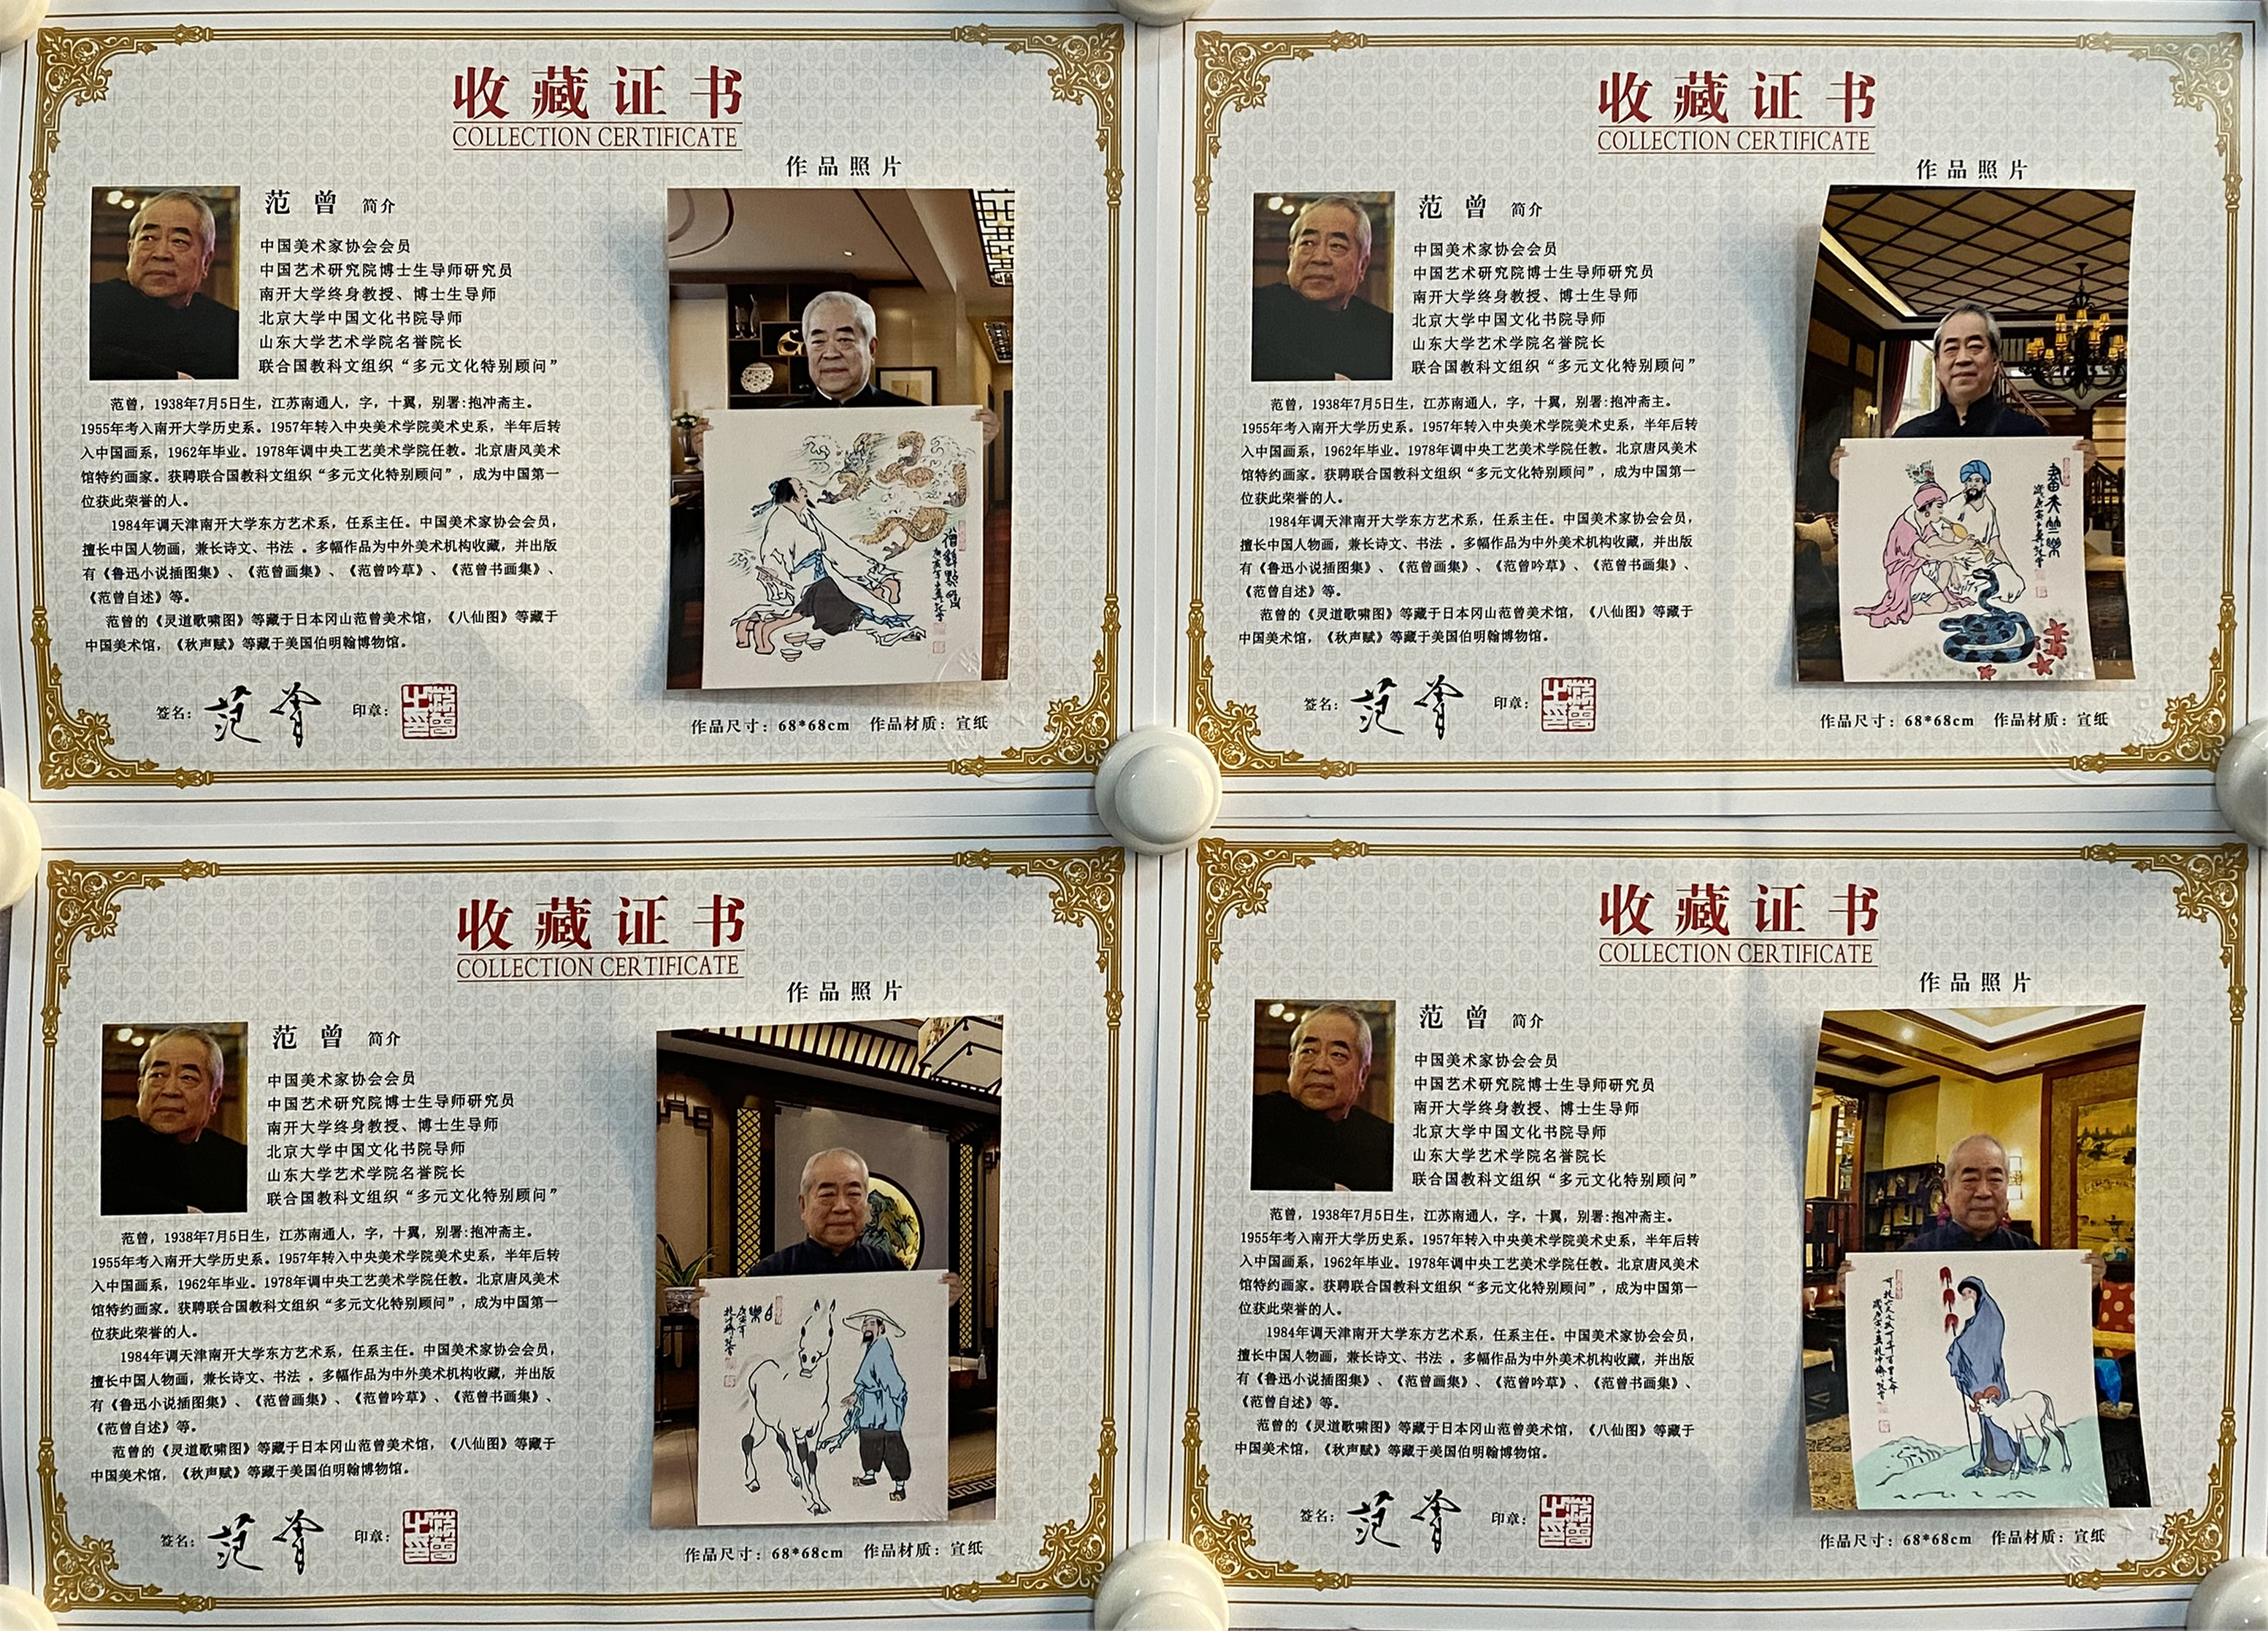 收藏证书
COLLECTION CERTIFICATE
作品照片
范曾 简介
中国美术家协会会员
中国艺术研究院博士生导师研究员
南开大学终身教授、博士生导师
北京大学中国文化书院导师
山东大学艺术学院名誉院长
联合国教科文组织“多元文化特别顾问”
范曾，1938年7月5日生，江苏南通人，字，十翼，别署:抱冲斋主。
1955年考入南开大学历史系。1957年转入中央美术学院美术史系，半年后转
入中国画系，1962年毕业。1978年调中央工艺美术学院任教。北京唐风美术
馆特约画家。获聘联合国教科文组织“多元文化特别顾问”，成为中国第一
位获此荣誉的人。
1984年调天津南开大学东方艺术系，任系主任。中国美术家协会会员，
擅长中国人物画，兼长诗文、书法 。多幅作品为中外美术机构收藏，并出版
有《鲁迅小说插图集》、《范曾画集》、《范曾吟草》、《范曾书画集》、
《范曾自述》等。
范曾的《灵道歌啸图》等藏于日本冈山范曾美术馆，《八仙图》等藏于
中国美术馆，《秋声赋》等藏于美国伯明翰博物馆。
签名：范曾 印章：
作品尺寸：68*68cm 作品材质：宣纸
收藏证书
COLLECTION CERTIFICATE
作品照片
范曾 简介
中国美术家协会会员
中国艺术研究院博士生导师研究员
南开大学终身教授、博士生导师
北京大学中国文化书院导师
山东大学艺术学院名誉院长
联合国教科文组织“多元文化特别顾问”
范曾，1938年7月5日生，江苏南通人，字，十翼，别署:抱冲斋主。
1955年考入南开大学历史系。1957年转入中央美术学院美术史系，半年后转
入中国画系，1962年毕业。1978年调中央工艺美术学院任教。北京唐风美术
馆特约画家。获聘联合国教科文组织“多元文化特别顾问”，成为中国第一
位获此荣誉的人。
1984年调天津南开大学东方艺术系，任系主任。中国美术家协会会员，
擅长中国人物画，兼长诗文、书法 。多幅作品为中外美术机构收藏，并出版
有《鲁迅小说插图集》、《范曾画集》、《范曾吟草》、《范曾书画集》、
《范曾自述》等。
范曾的《灵道歌啸图》等藏于日本冈山范曾美术馆，《八仙图》等藏于
中国美术馆，《秋声赋》等藏于美国伯明翰博物馆。
签名：范曾 印章：
畫天竺樂
作品尺寸：68*68cm 作品材质：宣纸
收藏证书
COLLECTION CERTIFICATE
作品照片
范曾 简介
中国美术家协会会员
中国艺术研究院博士生导师研究员
南开大学终身教授、博士生导师
北京大学中国文化书院导师
山东大学艺术学院名誉院长
联合国教科文组织“多元文化特别顾问”
范曾，1938年7月5日生，江苏南通人，字，十翼，别署:抱冲斋主。
1955年考入南开大学历史系。1957年转入中央美术学院美术史系，半年后转
入中国画系，1962年毕业。1978年调中央工艺美术学院任教。北京唐风美术
馆特约画家。获聘联合国教科文组织“多元文化特别顾问”，成为中国第一
位获此荣誉的人。
1984年调天津南开大学东方艺术系，任系主任。中国美术家协会会员，
擅长中国人物画，兼长诗文、书法 。多幅作品为中外美术机构收藏，并出版
有《鲁迅小说插图集》、《范曾画集》、《范曾吟草》、《范曾书画集》、
《范曾自述》等。
范曾的《灵道歌啸图》等藏于日本冈山范曾美术馆，《八仙图》等藏于
中国美术馆，《秋声赋》等藏于美国伯明翰博物馆。
签名：范曾 印章：
作品尺寸：68*68cm 作品材质：宣纸
收藏证书
COLLECTION CERTIFICATE
作品照片
范曾 简介
中国美术家协会会员
中国艺术研究院博士生导师研究员
南开大学终身教授、博士生导师
北京大学中国文化书院导师
山东大学艺术学院名誉院长
联合国教科文组织“多元文化特别顾问”
范曾，1938年7月5日生，江苏南通人，字，十翼，别署:抱冲斋主。
1955年考入南开大学历史系。1957年转入中央美术学院美术史系，半年后转
入中国画系，1962年毕业。1978年调中央工艺美术学院任教。北京唐风美术
馆特约画家。获聘联合国教科文组织“多元文化特别顾问”，成为中国第一
位获此荣誉的人。
1984年调天津南开大学东方艺术系，任系主任。中国美术家协会会员，
擅长中国人物画，兼长诗文、书法 。多幅作品为中外美术机构收藏，并出版
有《鲁迅小说插图集》、《范曾画集》、《范曾吟草》、《范曾书画集》、
《范曾自述》等。
范曾的《灵道歌啸图》等藏于日本冈山范曾美术馆，《八仙图》等藏于
中国美术馆，《秋声赋》等藏于美国伯明翰博物馆。
签名：范曾 印章：
作品尺寸：68*68cm 作品材质：宣纸